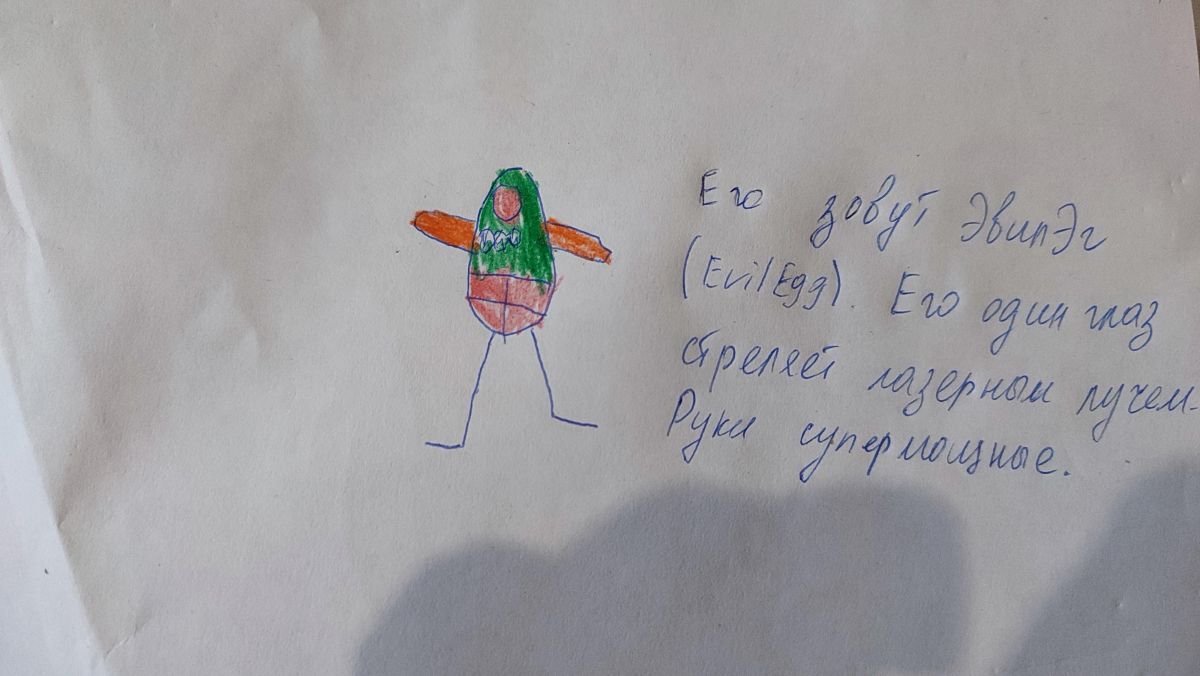 Его зовут ЭвилЭг
(EvilEgg). Его один глаз
стреляет лазерным лучем.
Руки супермощные.